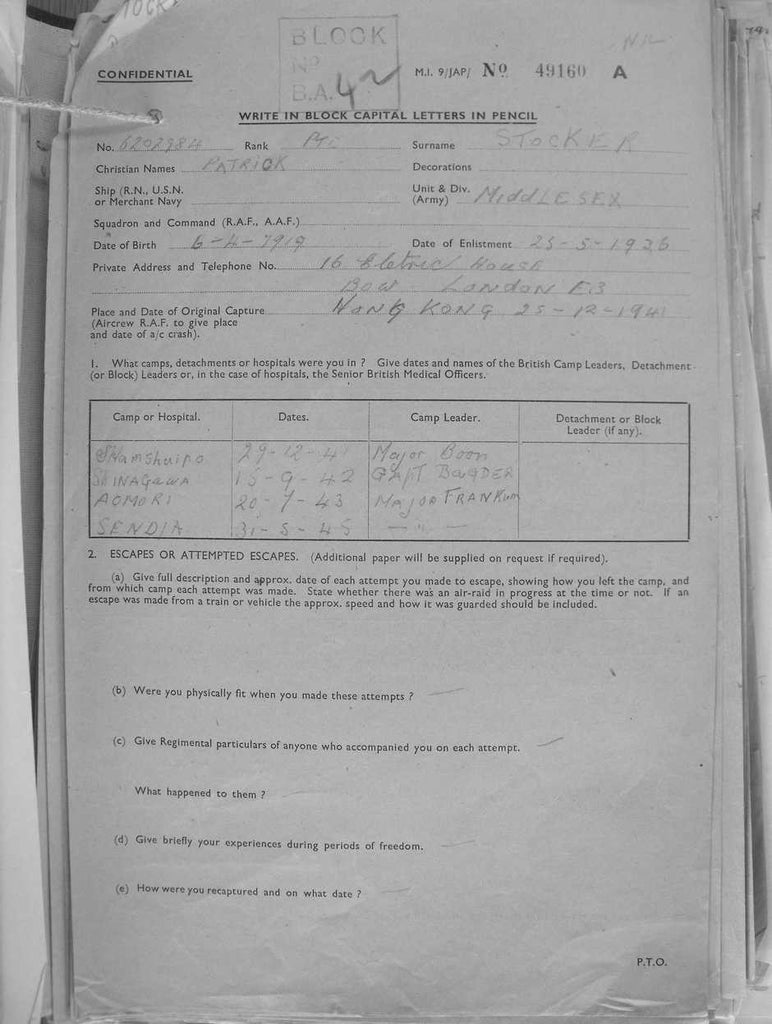 BLOCK
Nº
B.A. 42
CONFIDENTIAL
M.I. 9/JAP/ Nº 49160 A
WRITE IN BLOCK CAPITAL LETTERS IN PENCIL
No. 6202984 Rank Pte Surname STOCKER
Christian Names PATRICK Decorations
Ship (R.N., U.S.N. or Merchant Navy
Unit & Div. (Army) MiddLESEX
Squadron and Command (R.A.F., A.A.F.)
Date of Birth 6-4-1919 Date of Enlistment 25-5-1936
Private Address and Telephone No. 16 Eletric House
Bow London E3
Place and Date of Original Capture HONG KONG 25-12-1941
(Aircrew R.A.F. to give place
and date of a/c crash).
1. What camps, detachments or hospitals were you in ? Give dates and names of the British Camp Leaders, Detachment
(or Block) Leaders or, in the case of hospitals, the Senior British Medical Officers.
Camp or Hospital. Dates. Camp Leader. Detachment or Block Leader (if any).
Shamshuipo 29-12-41 Major Boon
SHINAGAWA 15-9-42 CAPT
AOMORI 20-7-43 MAJOR FRANKum
SENDIA 31-5-45 — " —
2. ESCAPES OR ATTEMPTED ESCAPES. (Additional paper will be supplied on request if required).
(a) Give full description and approx. date of each attempt you made to escape, showing how you left the camp, and
from which camp each attempt was made. State whether there was an air-raid in progress at the time or not. If an
escape was made from a train or vehicle the approx. speed and how it was guarded should be included.
(b) Were you physically fit when you made these attempts ? —
(c) Give Regimental particulars of anyone who accompanied you on each attempt. —
What happened to them ? —
(d) Give briefly your experiences during periods of freedom. —
(e) How were you recaptured and on what date ? —
P.T.O.